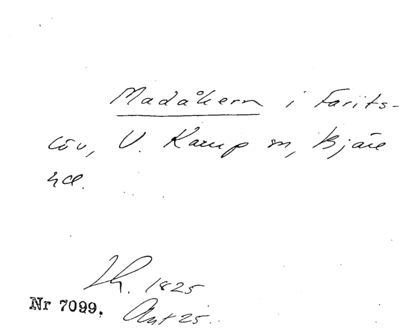 Madåkern i Farits-
löv, V. Karup sn, Bjäre
hd.
Lh. 1825
Nr 7099. Ant 25.